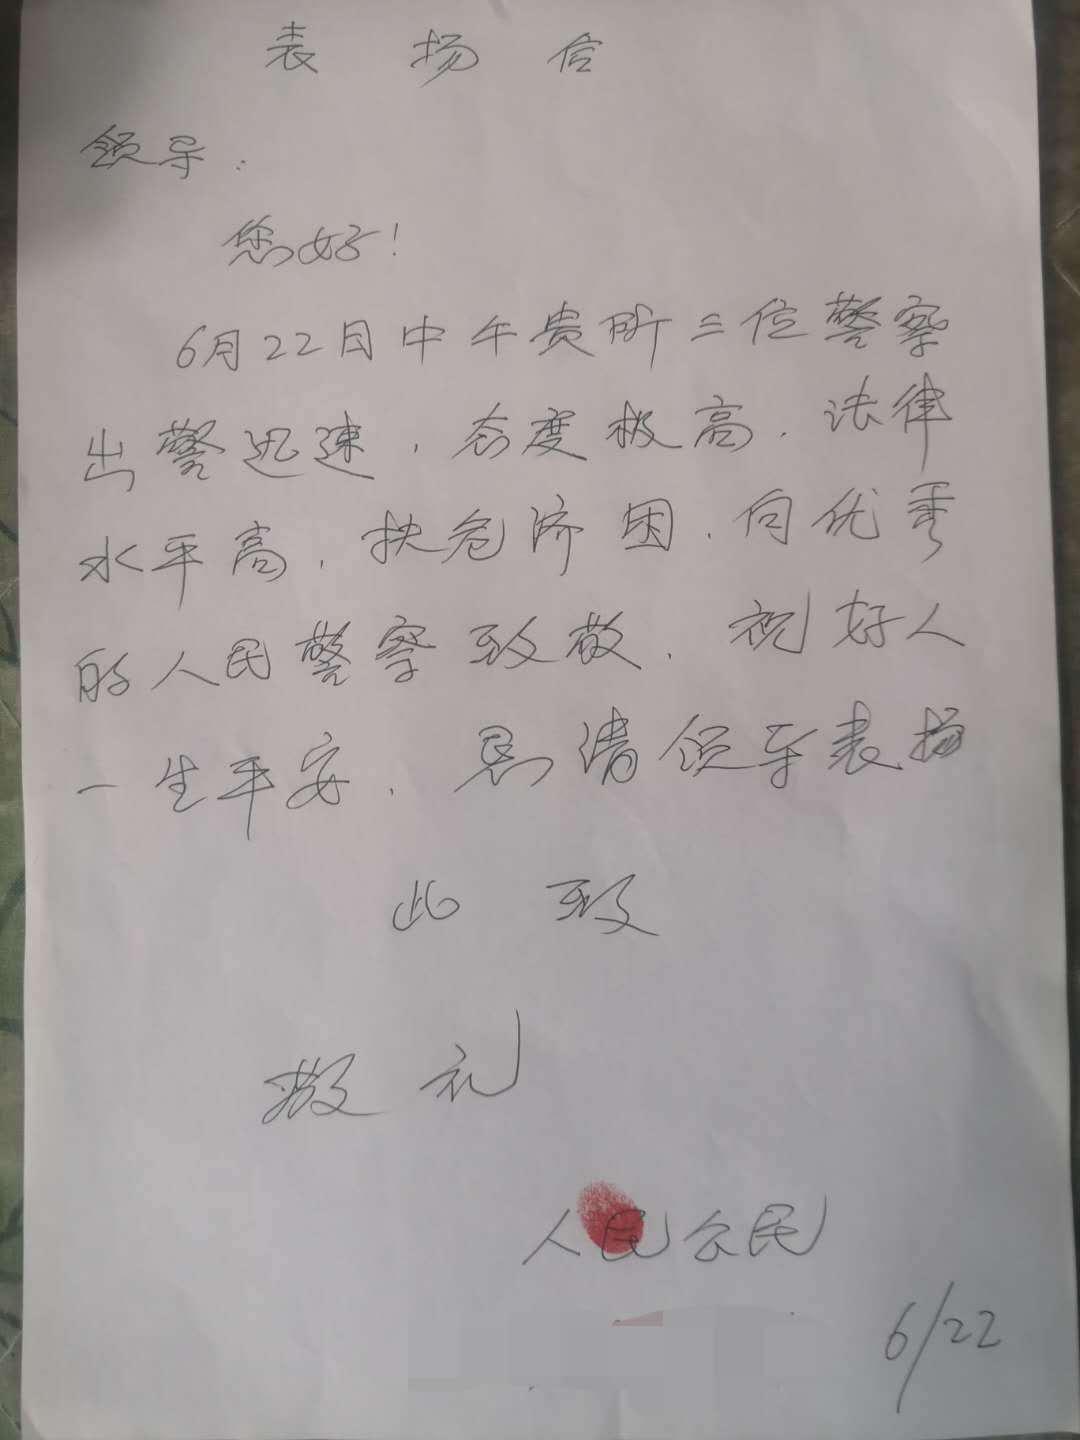 表扬信
领导：
您好！
6月22日中午贵所三位警察
出警迅速，态度极高，法律
水平高，扶危济困，向优秀
的人民警察致敬，祝好人
一生平安，恳请领导表扬
此致
敬礼
人民公民
6/22